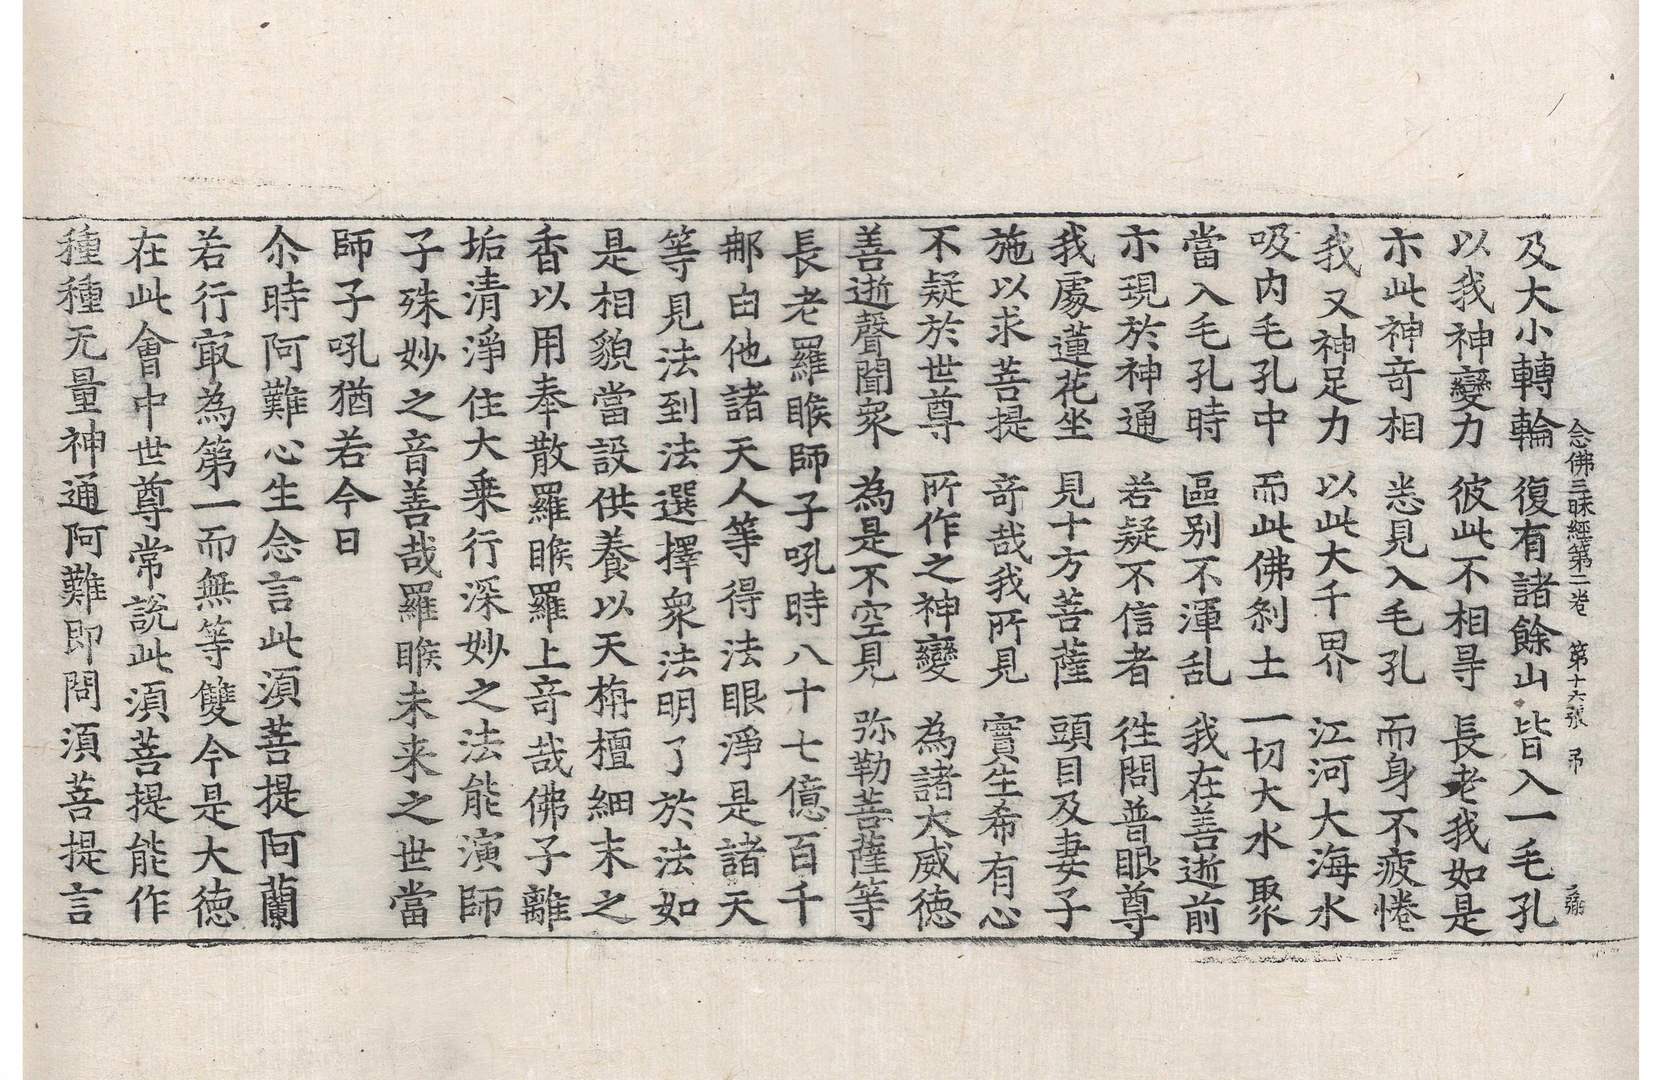 念佛三昧經第二卷　第十六張　弔
及大小轉輪　復有諸餘山　皆入一毛孔
以我神變力　彼此不相㝵　長老我如是
亦此神竒相　悉見入毛孔　而身不疲惓
我又神足力　以此大千界　江河大海水
吸内毛孔中　而此佛剎土　一切大水聚
當入毛孔時　區別不渾乱　我在善逝前
亦現於神通　若疑不信者　徃問普眼尊
我處蓮花坐　見十方菩薩　頭目及妻子
施以求菩提　竒哉我所見　實生希有心
不疑於世尊　所作之神變　為諸大威徳
善逝聲聞衆　為是不空見　弥勒菩薩等
長老羅睺師子吼時八十七億百千
那由他諸天人等得法眼淨是諸天
等見法到法選擇衆法明了於法如
是相貌當設供養以天栴檀細末之
香以用奉散羅睺羅上竒哉佛子離
垢清淨住大乗行深妙之法能演師
子殊妙之音善哉羅睺未来之世當
師子吼猶若今日
尒時阿難心生念言此湏菩提阿蘭
若行㝡為第一而無等雙今是大徳
在此會中世尊常說此湏菩提能作
種種无量神通阿難即問湏菩提言